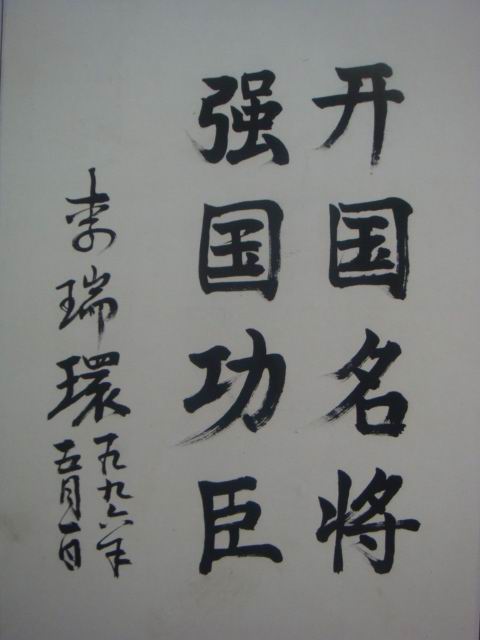 开国名将
强国功臣
李瑞環
一九九六年
五月一日